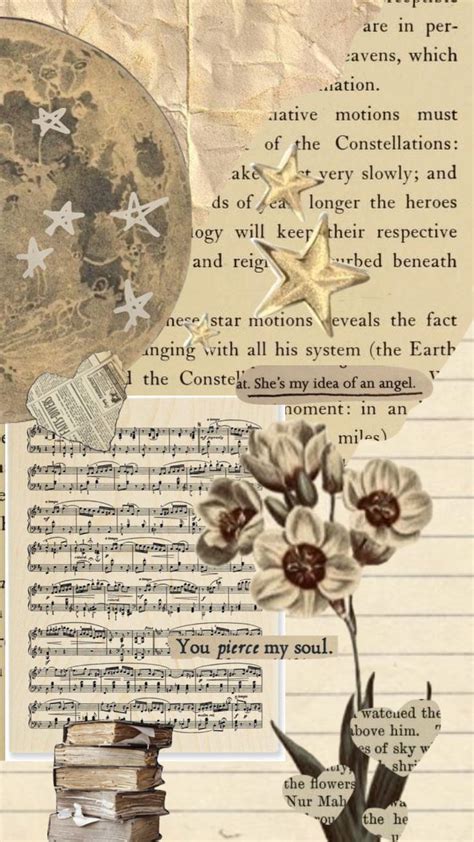 are in per-
eavens, which
mation.
lative motions must
of the Constellations:
ake very slowly; and
ds of longer the heroes
logy will keep their respective
and reign urbed beneath
hese star motions reveals the fact
anging with all his system (the Earth
d the Constel
at. She's my idea of an angel.
moment: in an
miles)
You pierce my soul.
watched the
above him. T
es of sky w
shri
the flowers
Nur Mah